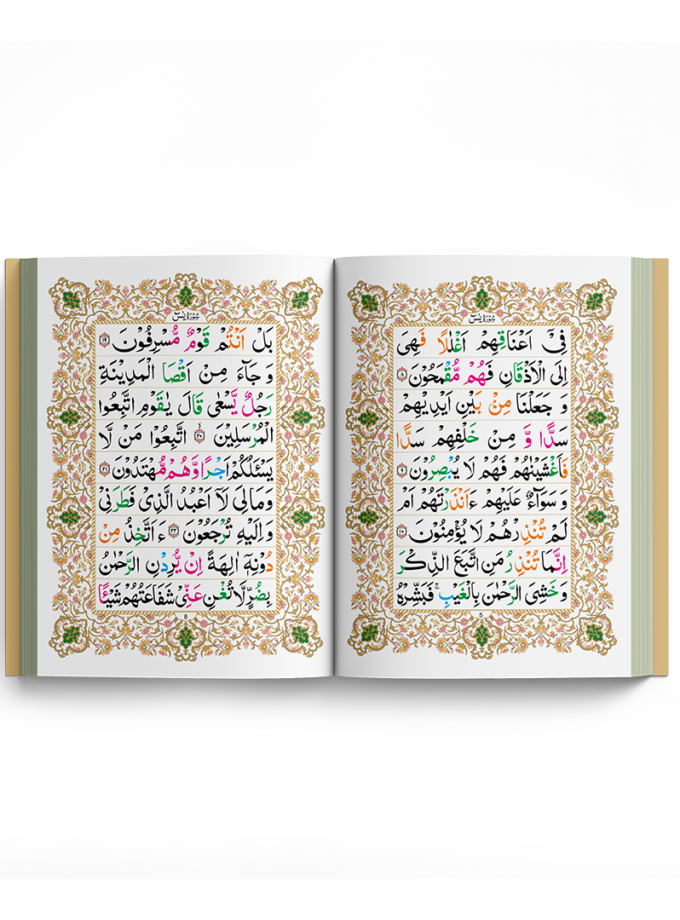 سُوْرَةُ يٰسٓ
فِیْۤ اَعْنَاقِهِمْ اَغْلٰلًا فَهِیَ
اِلَی الْاَذْقَانِ فَهُمْ مُّقْمَحُوْنَ ﴿۸﴾
وَ جَعَلْنَا مِنْۢ بَیْنِ اَیْدِیْهِمْ
سَدًّا وَّ مِنْ خَلْفِهِمْ سَدًّا
فَاَغْشَیْنٰهُمْ فَهُمْ لَا یُبْصِرُوْنَ ﴿۹﴾
وَ سَوَآءٌ عَلَیْهِمْ ءَاَنْذَرْتَهُمْ اَمْ
لَمْ تُنْذِرْهُمْ لَا یُؤْمِنُوْنَ ﴿۱۰﴾
اِنَّمَا تُنْذِرُ مَنِ اتَّبَعَ الذِّكْرَ
وَ خَشِیَ الرَّحْمٰنَ بِالْغَیْبِ ۚ فَبَشِّرْهُ
5
سُوْرَةُ يٰسٓ
بَلْ اَنْتُمْ قَوْمٌ مُّسْرِفُوْنَ ﴿۱۹﴾
وَ جَآءَ مِنْ اَقْصَا الْمَدِیْنَةِ
رَجُلٌ یَّسْعٰی قَالَ یٰقَوْمِ اتَّبِعُوا
الْمُرْسَلِیْنَ ﴿۲۰﴾ اتَّبِعُوْا مَنْ لَّا
یَسْـَٔلُكُمْ اَجْرًا وَّهُمْ مُّهْتَدُوْنَ ﴿۲۱﴾
وَمَا لِیَ لَاۤ اَعْبُدُ الَّذِیْ فَطَرَنِیْ
وَ اِلَیْهِ تُرْجَعُوْنَ ﴿۲۲﴾ ءَ اَتَّخِذُ مِنْ
دُوْنِهٖۤ اٰلِهَةً اِنْ یُّرِدْنِ الرَّحْمٰنُ
بِضُرٍّ لَّا تُغْنِ عَنِّیْ شَفَاعَتُهُمْ شَیْـًٔا
8